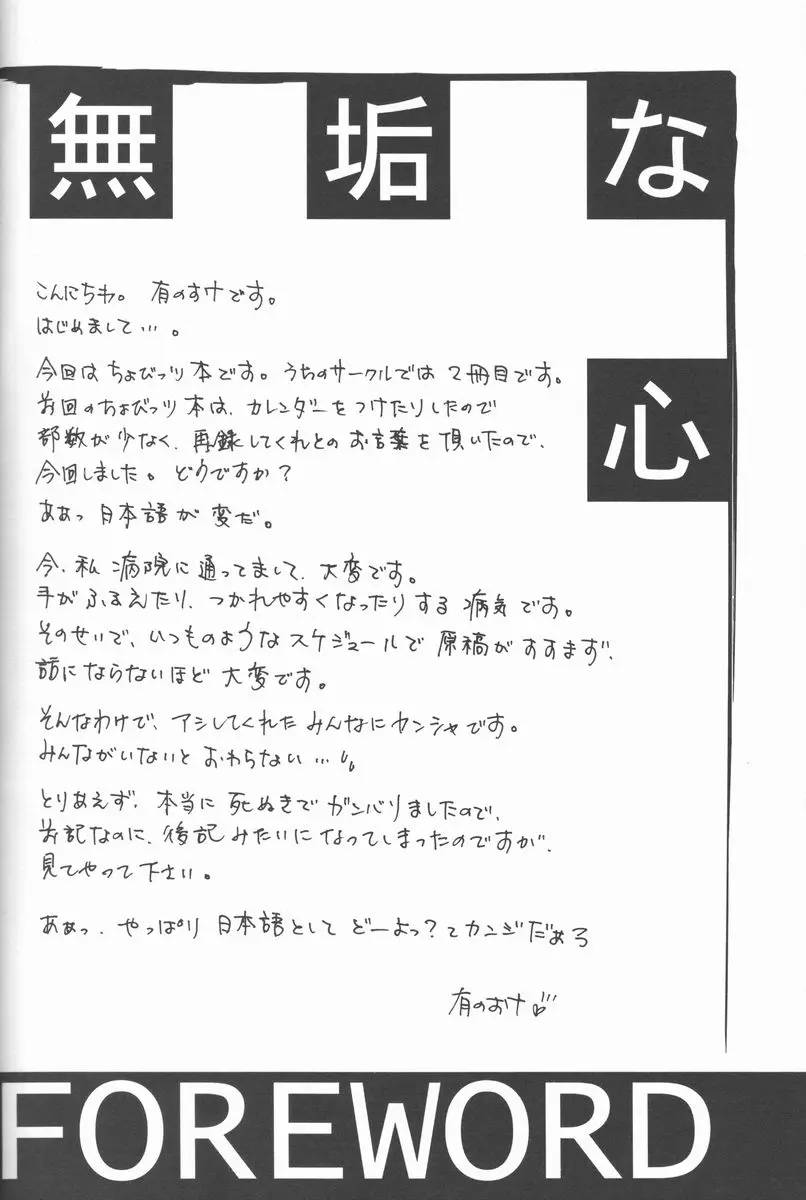 無垢な
心
こんにちわ。 有のすけです。
はじめまして…。
今回は ちょびっツ 本です。うちのサークルでは 2冊目です。
前回のちょびっツ本は、カレンダーをつけたりしたので
部数が少なく、再録してくれとの お言葉を頂いたので、
今回しました。どうですか?
ああっ 日本語が 変だ。
今、私 病院に通ってまして、大変です。
手が ふるえたり、つかれやすくなったりする 病気です。
そのせいで、いつものようなスケジュールで 原稿がすすまず、
話にならないほど 大変です。
そんなわけで、アシしてくれた みんなにカンシャです。
みんながいないと おわらない…
とりあえず、本当に 死ぬきで ガンバリましたので、
前記なのに、後記みたいになってしまったのですが、
見てやって下さい。
あぁっ、やっぱり 日本語として どーよっ?てカンジだぁろ
有のすけ
FOREWORD